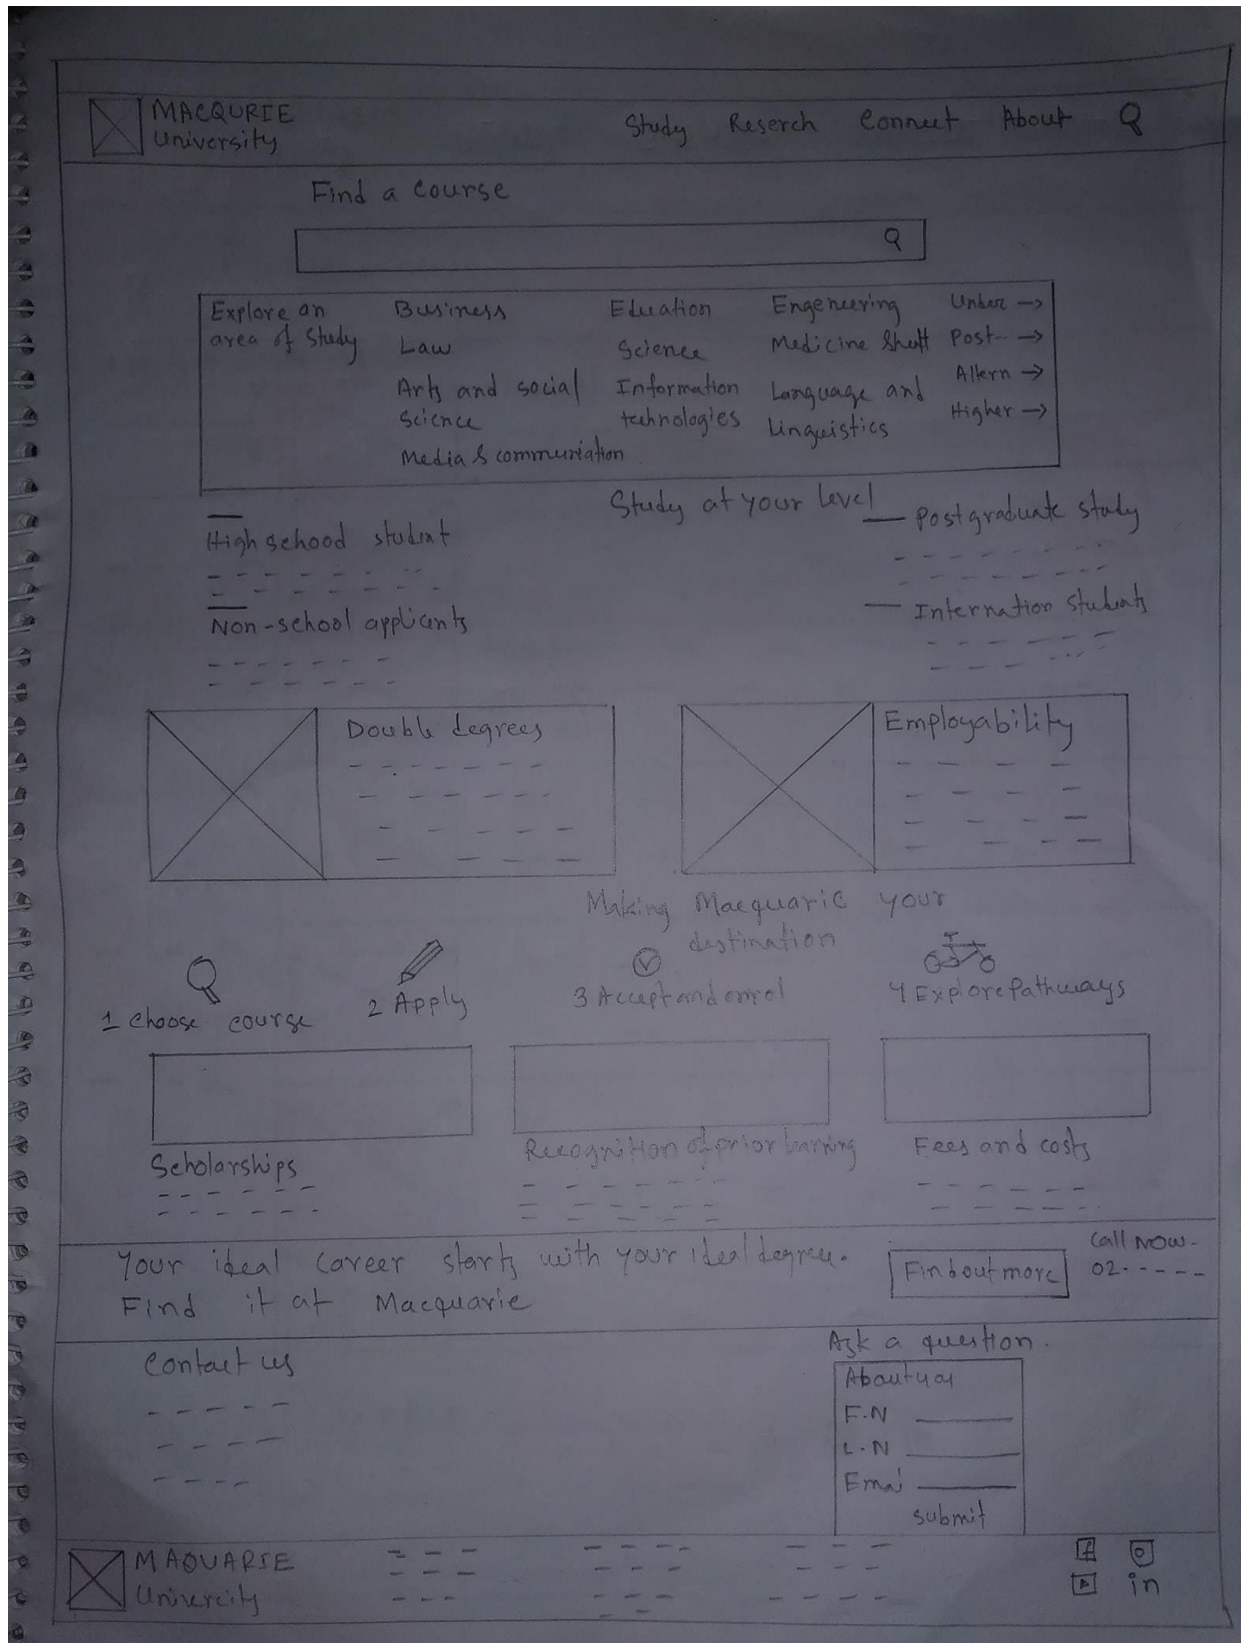 MACQURIE
University
Study Reserch Connect About
Find a course
Explore an
area of Study
Business
Law
Arts and social
Science
Media & communiation
Eduation
Science
Information
technologies
Engeneering
Medicine
Language and
Linguistics
Under →
Post-- →
Altern →
Higher →
Study at your level
High school student
Non-school applicants
Postgraduate study
Internation students
Double degrees
Employability
Making Macquarie your
destination
1 choose course
2 Apply
3 Accept and enrol
4 Explore Pathways
Scholarships
Recognition of prior larning
Fees and costs
Your ideal career starts with your ideal degree.
Find it at Macquarie
Find out more
Call NOW-
02-----
Contact us
Ask a question.
About you
F.N
L.N
Emai
submit
MAQUARIE
Univercity
f
in